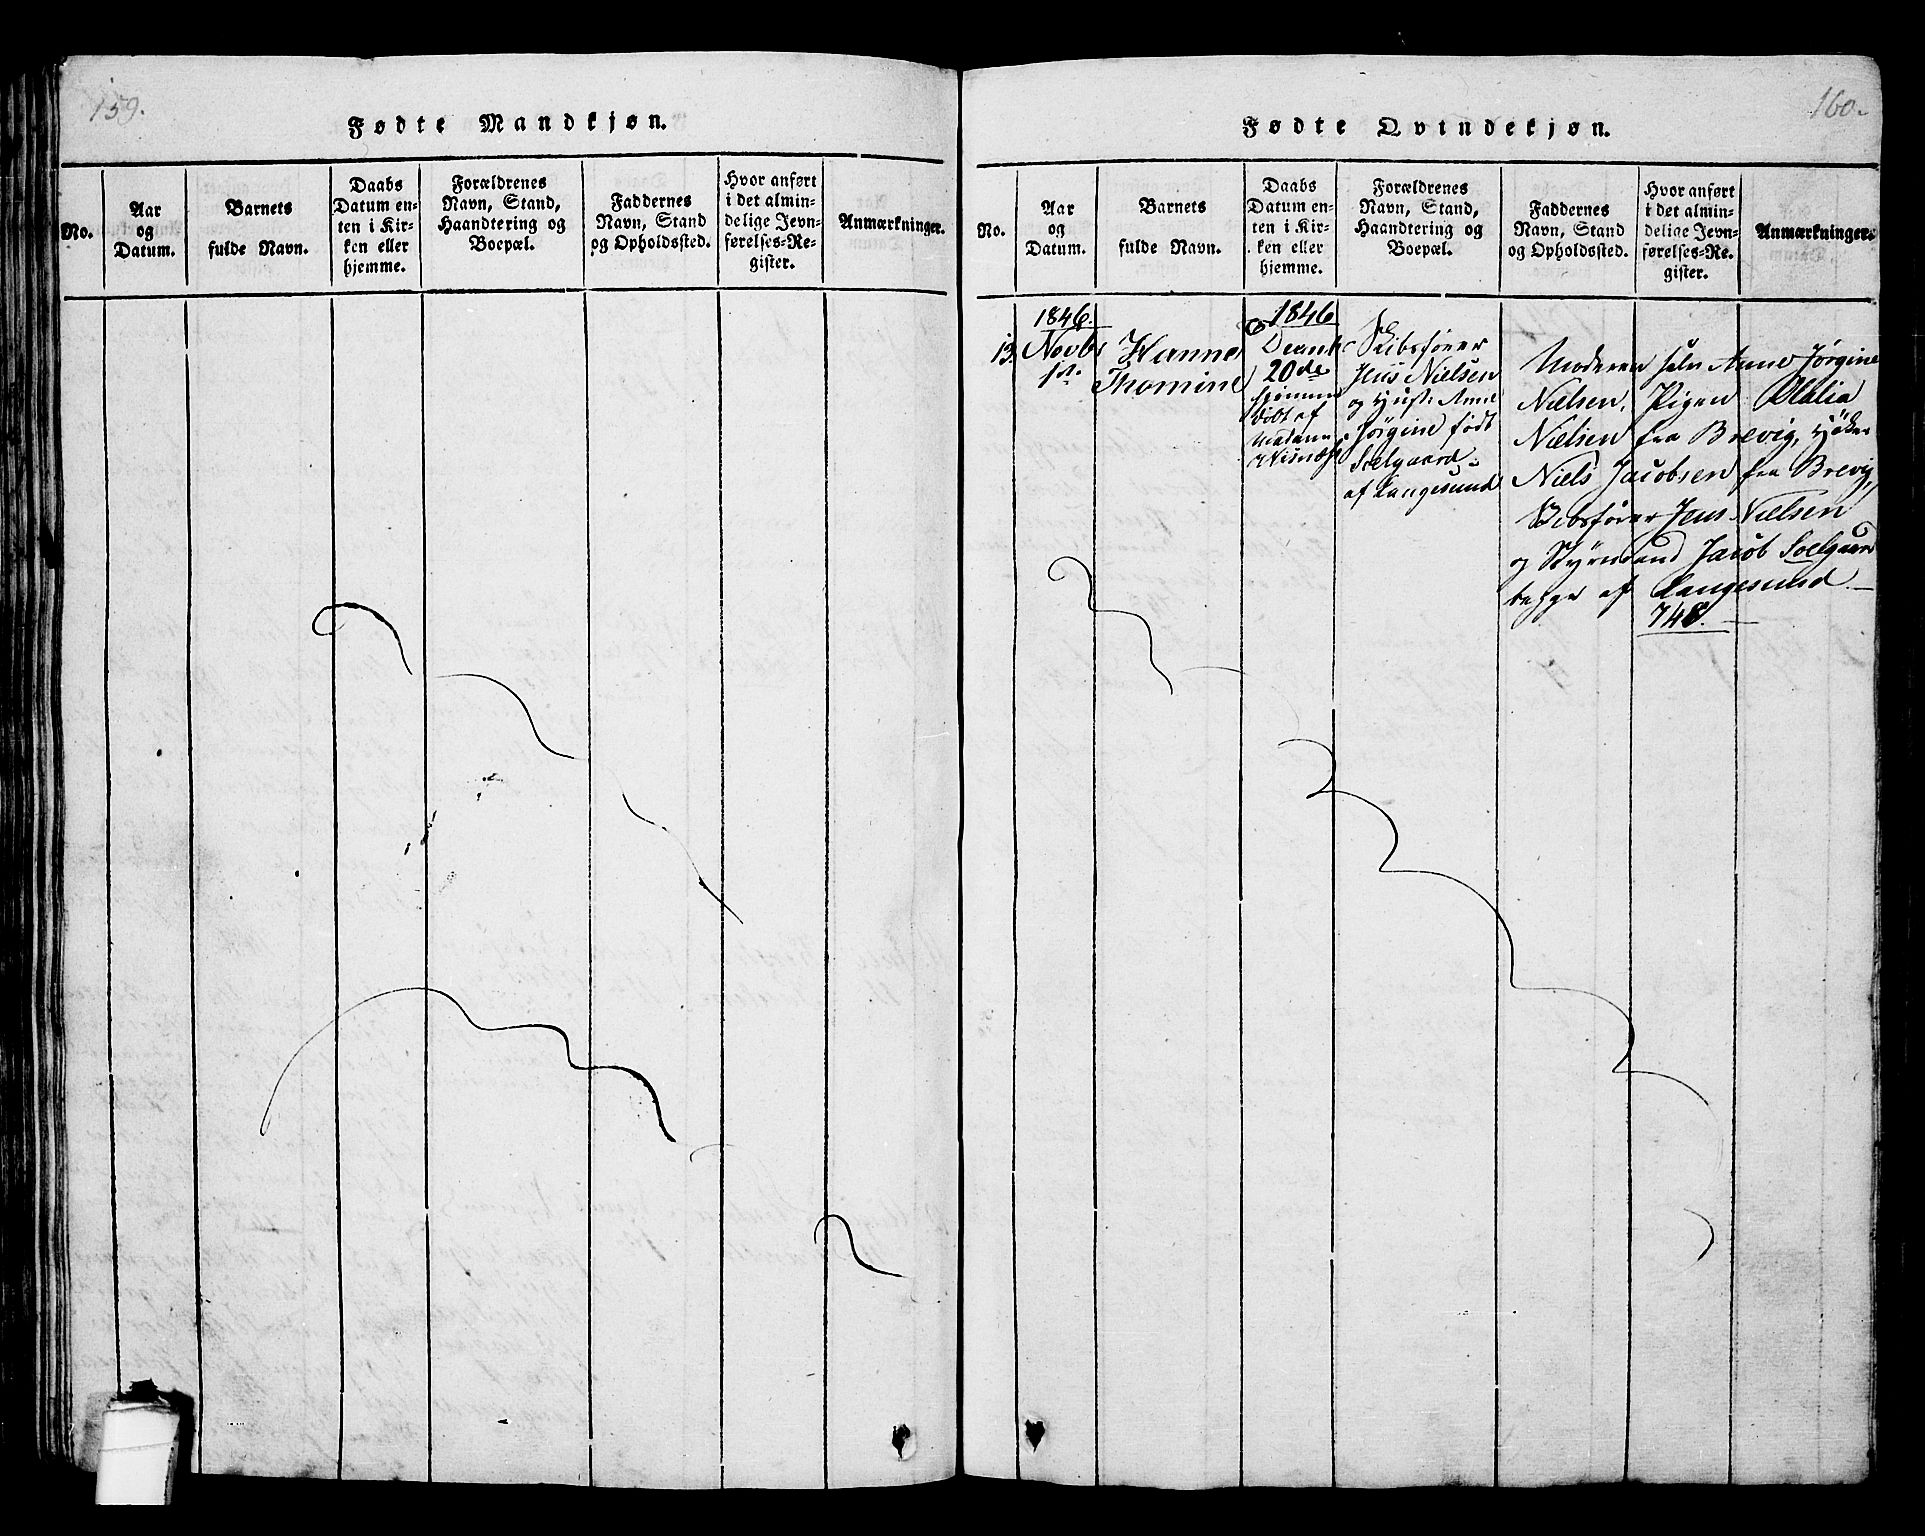 159.
Fødte Mandkjøn.
No.
Aar
og
Datum.
Barnets
fulde Navn.
Daabs
Datum en-
ten i Kir-
ken eller
hjemme.
Forældrenes
Navn, Stand,
Haandtering og
Boepæl.
Faddernes
Navn, Stand
og Opholdssted.
Hvor anført
i det almin-
delige Jevn-
førelses-Re-
gister.
Anmærkninger.
160.
Fødte Qvindekjøn.
No.
Aar
og
Datum.
Barnets
fulde Navn.
Daabs
Datum en-
ten i Kir-
ken eller
hjemme.
Forældrenes
Navn, Stand,
Haandtering og
Boepæl.
Faddernes
Navn, Stand
og Opholdssted.
Hvor anført
i det almin-
delige Jevn-
førelses-Re-
gister.
Anmærkninger.
13.
1846.
Novbr
1st.
Hanne
Thomine
1846
20de
hjemme
døbt af
Madame
Skibsfører
Jens Nielsen
og Hust: Anne
Jørgine født
Soelgaard
af Langesund
Moderen selv Anne Jørgine
Nielsen, Pigen
Nielsen fra Brevig, Høker
Niels Jacobsen fra Brevig,
Skibsfører Jens Nielsen
og Styrmand Jacob Soelgaard
begge af Langesund.
748.